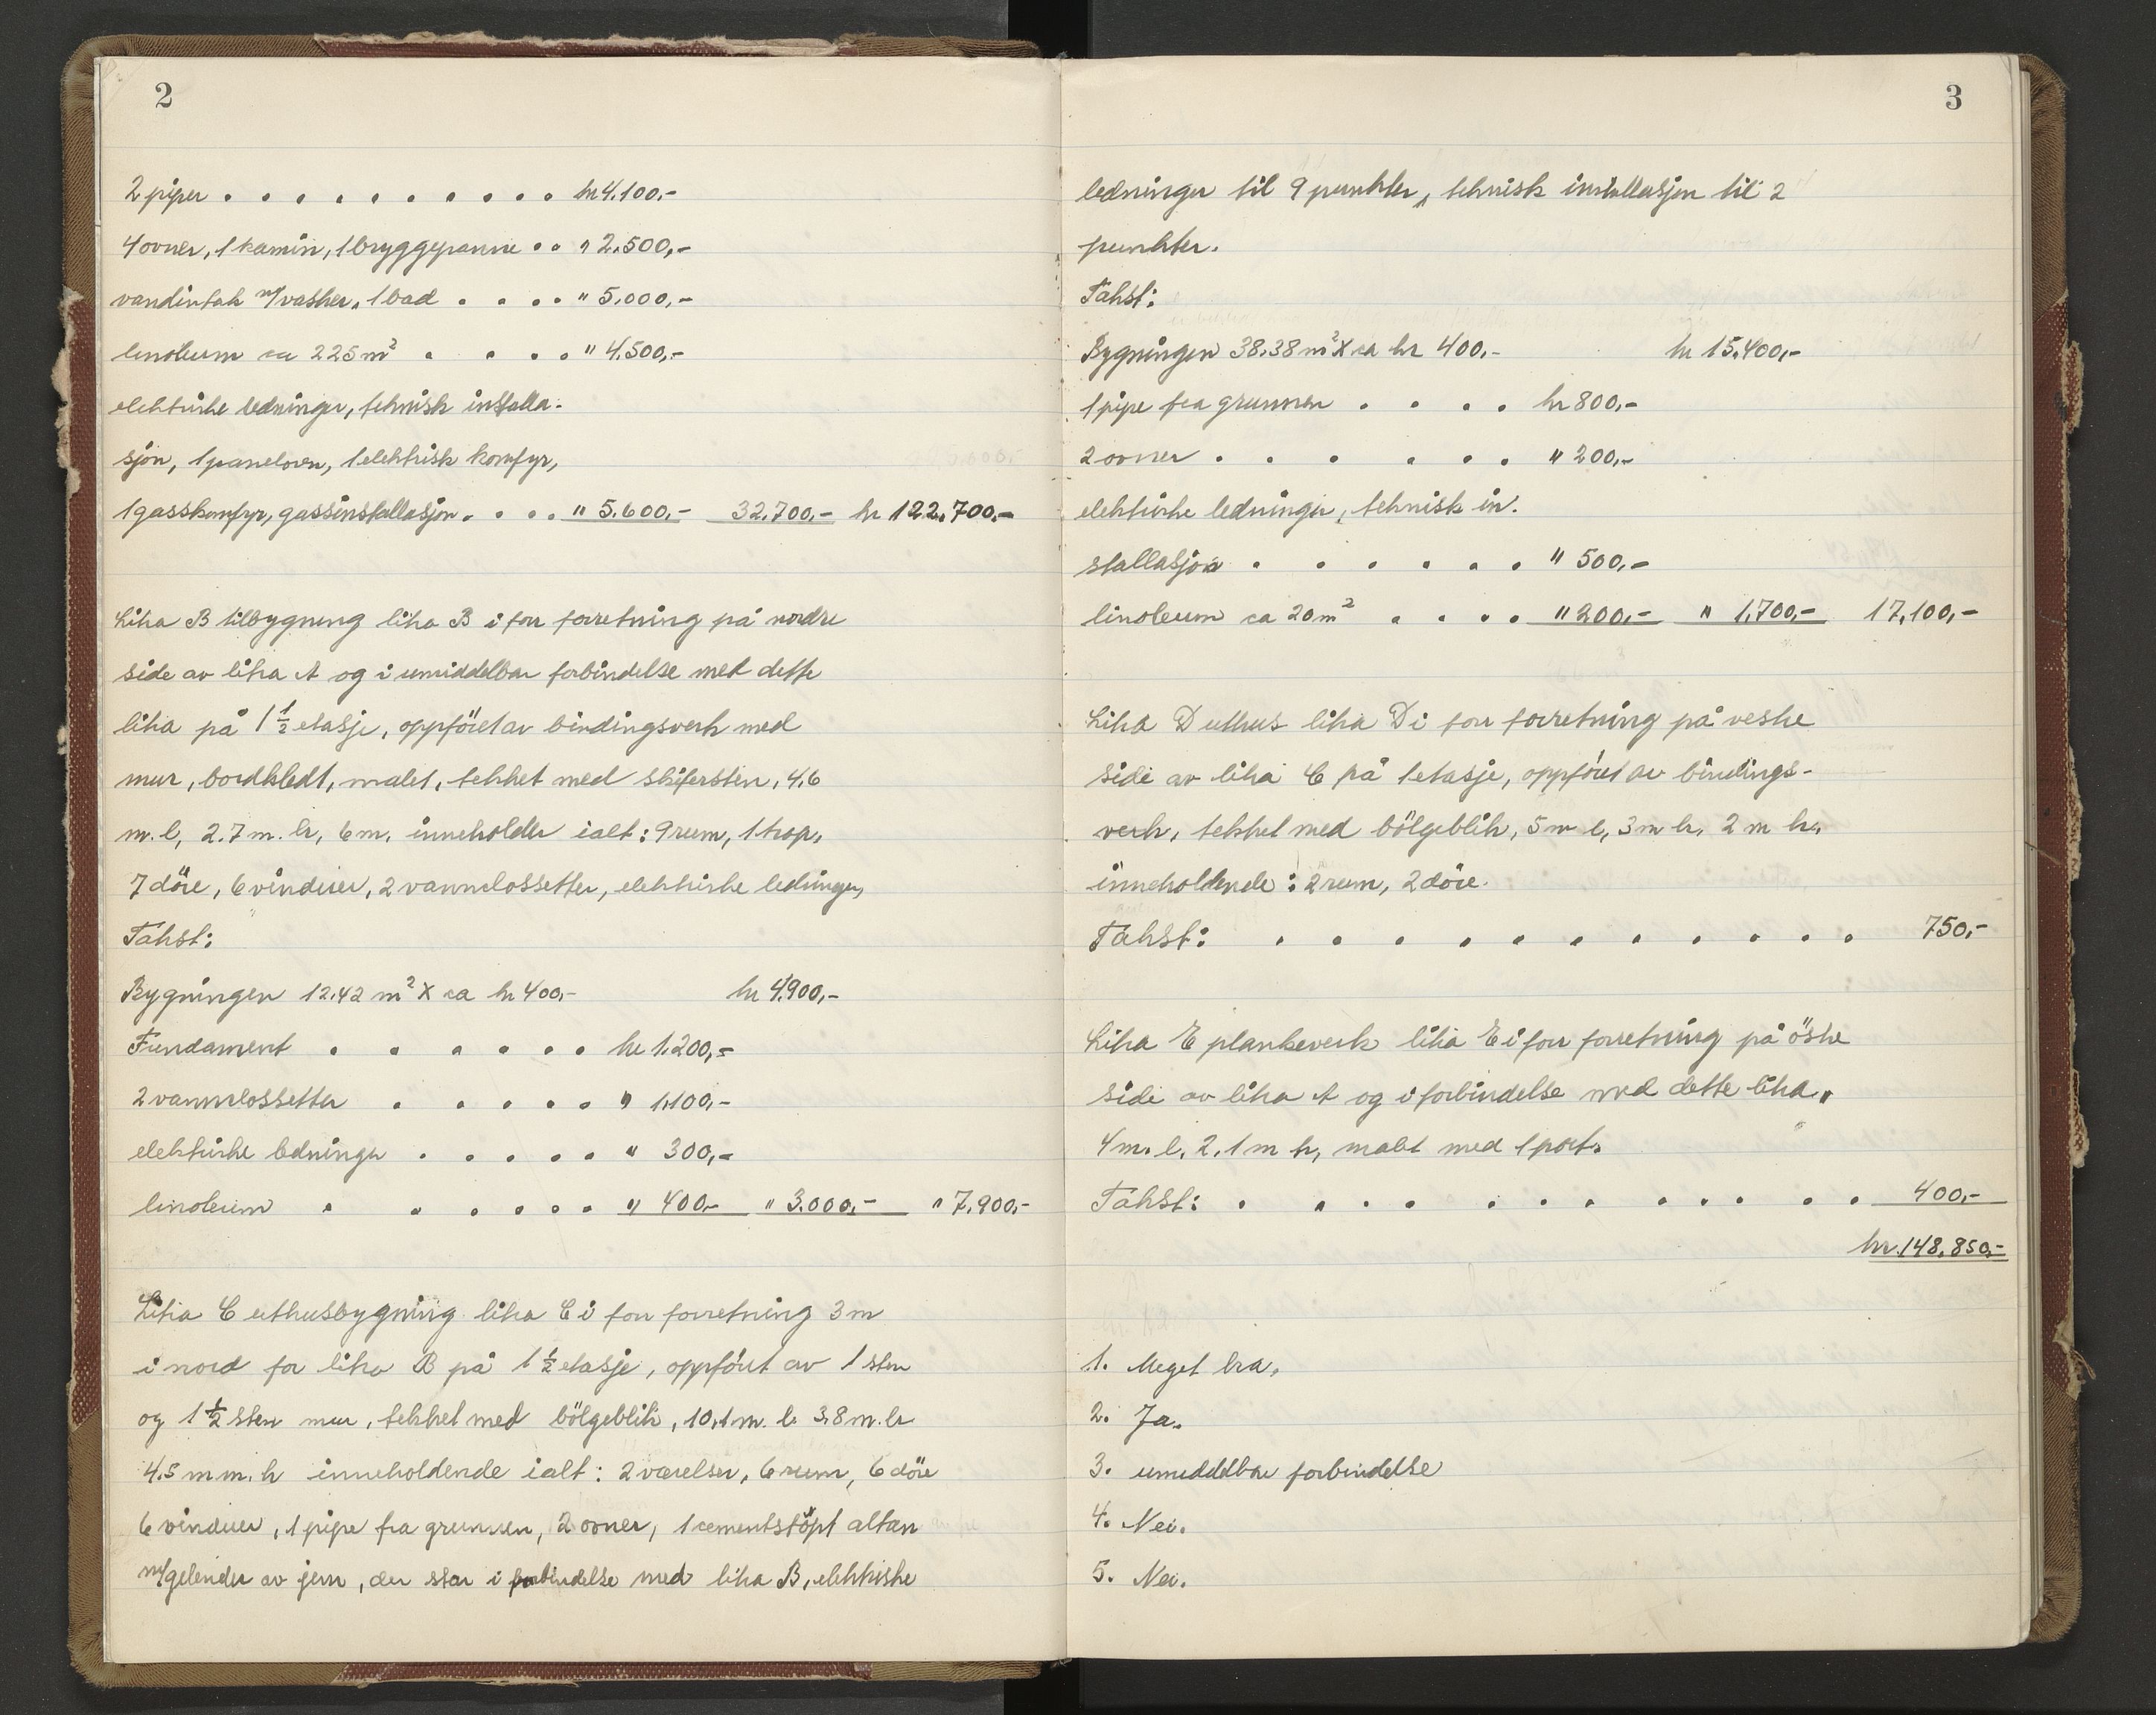 2
2 piper . . . . . . . . . . kr 4.100,-
4 ovner, 1 kamin, 1 bryggepanne . . " 2.500,-
vandintak m/vasker, 1 bad . . . . " 5.000,-
linoleum ca 225 m² . . . . " 4.500,-
elektriske ledninger, teknisk installa-
sjon, 1 panelovn, 1 elektrisk komfyr,
1 gasskomfyr, gassinstallasjon . . . . " 5.600,- 32.700,- kr 122.700,-
Litra B tilbygning litra B i forr forretning på nordre
side av litra A og i umiddelbar forbindelse med dette
litra på 1 ½ etasje, oppföret av bindingsverk med
mur, bordkledt, malet, tekket med skifersten, 4,6
m. l, 2.7 m. br, 6 m. inneholder ialt: 9 rum, 1 trap,
7 döre, 6 vinduer, 2 vannclossetter, elektriske ledninger,
Takst:
Bygningen 12.42 m² X ca kr 400,- kr 4.900,-
Fundament . . . . . . kr 1.200,-
2 vannclossetter . . . . . " 1.100,-
elektriske ledninger . . . . . " 300,-
linoleum . . . . . . " 400,- " 3.000,- " 7.900,-
Litra C uthusbygning litra C i forr forretning 3 m
i nord for litra B på 1 ½ etasje, oppföret av 1 sten
og 1 ½ sten mur, tekket med bölgeblik, 10,1 m. l. 3,8 m. br
4.5 m m. h inneholdende ialt: 2 værelser, 6 rum, 6 döre
6 vinduer, 1 pipe fra grunnen, 2 ovner, 1 cementstöpt altan
m/gelender av jern, der star i forbindelse med litra B, elektriske
3
ledninger til 9 punkter, teknisk installasjon til 2
punkter.
Takst:
Bygningen 38.38 m² X ca kr 400,- kr 15.400,-
1 pipe fra grunnen . . . . kr 800,-
2 ovner . . . . . . " 200,-
elektriske ledninger, teknisk in-
stallasjon . . . . . . " 500,-
linoleum ca 20 m² . . . . " 200,- " 1.700,- 17,100,-
Litra D uthus litra D i forr forretning på vestre
side av litra C på 1 etasje, oppföret av bindings-
verk, tekket med bölgeblik, 5 m l, 3 m br, 2 m h,
inneholdende: 2 rum, 2 döre.
Takst: . . . . . . . . . . . 750,-
Litra E plankeverk litra E i forr forretning på östre
side av litra A og i forbindelse med dette litra,
4 m. l. 2,1 m h, malt med 1 port.
Takst: . . . . . . . . . . . . 400,-
kr. 148,850,-
1. Meget bra.
2. Ja.
3. umiddelbar forbindelse
4. Nei.
5. Nei.